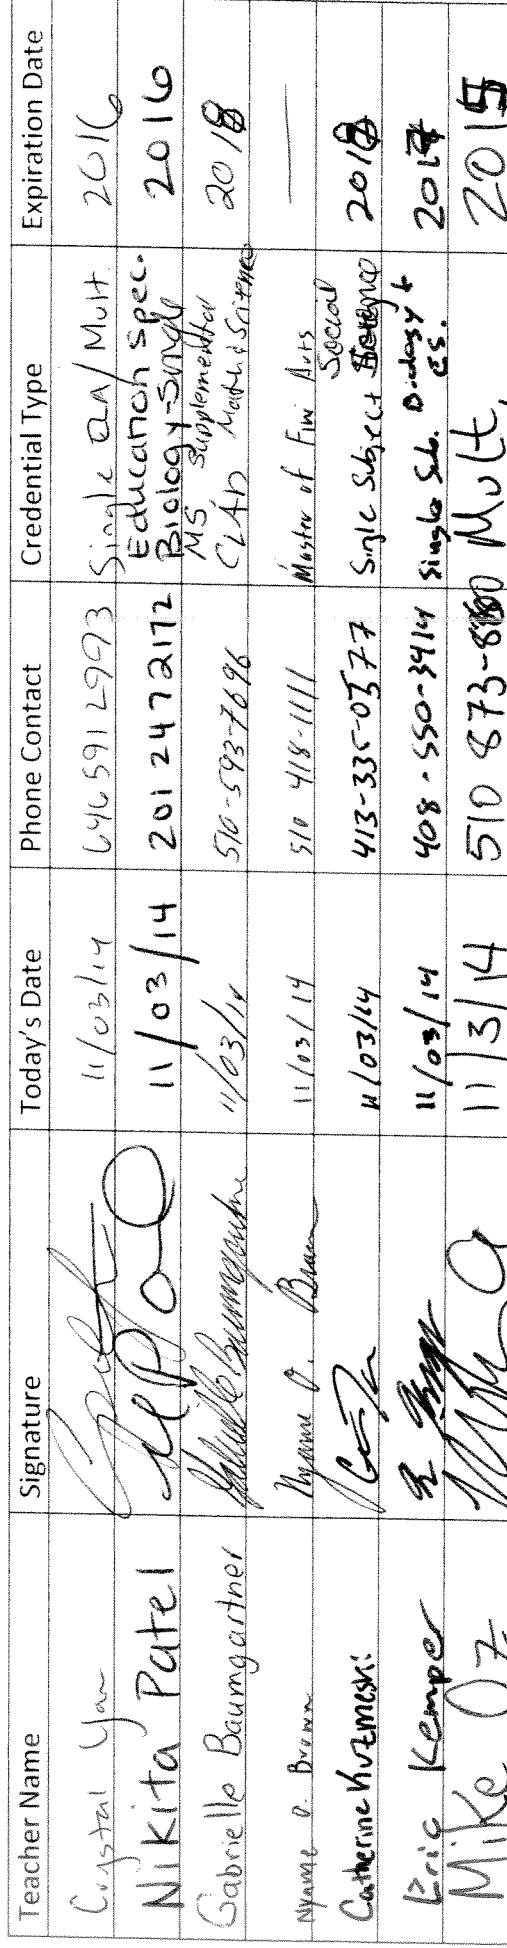 Teacher Name Signature Today's Date Phone Contact Credential Type Expiration Date
Crystal Yan 11/03/14 6465912993 Single ELA/ Mult. 2016
Nikita Patel NPatel 11/03/14 201 247 2172 Education Spec. Biology-Single 2016
Gabrielle Baumgartner Gabrielle Baumgartner 11/03/14 510-593-7696 MS Supplemental CLAD Math & Science 2018
Nyame O. Brown Nyame O. Brown 11/03/14 510 418-1111 Master of Fine Arts —
Catherine Kuzmeski 11/03/14 413-335-0577 Single Subject Social Science 2018
Eric Kemper 11/03/14 408-550-3414 Single Sub. Biology + CS. 2017
Mike Oz 11/3/14 510 873-8 Mult. 2015